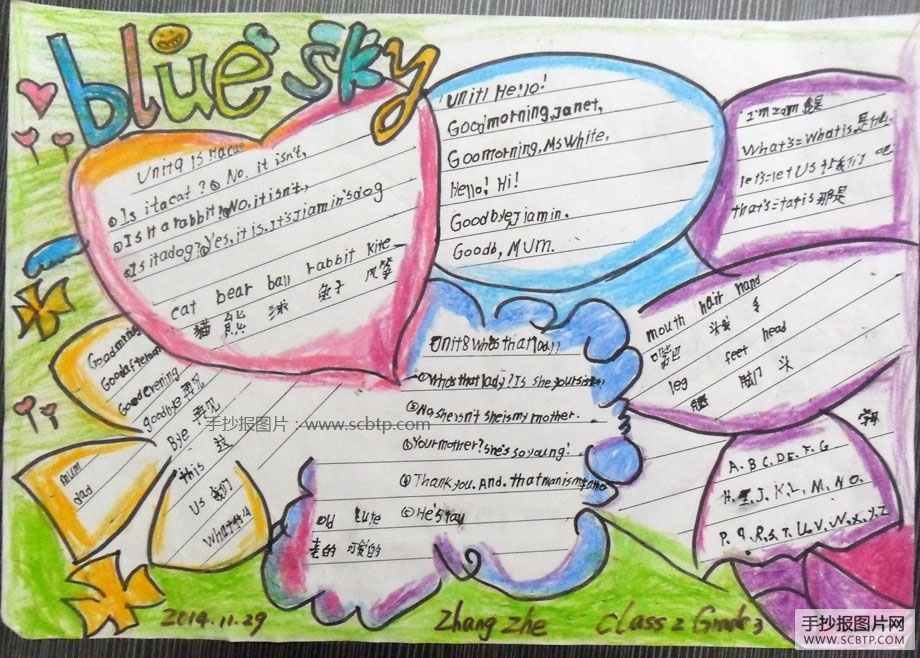 blue sky
Unit9 Is it a cat
①Is it a cat? ②No. it isn't,
①Is it a rabbit? ②No, it isn't,
①Is it a dog? ②Yes, it is, It's Jiamin's dog
cat bear ball rabbit kite
貓 熊 球 兔子 风筝
Unit1 Hello!
Good morning, Janet,
Goomorning, Ms White,
Hello! Hi!
Goodbye, Jiamin.
Goodb, MUM.
I'm=I am
What's=What is
let's=let us 让我们 吧
that's=tat is 那是
mouth hair hand
嘴巴 头发 手
leg feet head
腿 头
字母
A. B. C. D. E. F. G
H. I. J. K. L. M. N O.
P. q. R. S. T. U. V. W. X. Y. Z
Good morning
Good afternoon
Good evening
goodbye 再见
Bye 再见
this 这
us 我们
What 什么
mum
dad
Unit8 Who's that lady?
①Who's that lady? Is she your sister
②No, she isn't she is my mother.
①Your mother? she's so young!
②Thank you. And. that man is my father
①He's tall
old cute
老的 可爱的
2014.11.29
Zhang Zhe
Class 2 Grade 3
手抄报图片：www.scbtp.com
手抄报图片网
WWW.SCBTP.COM